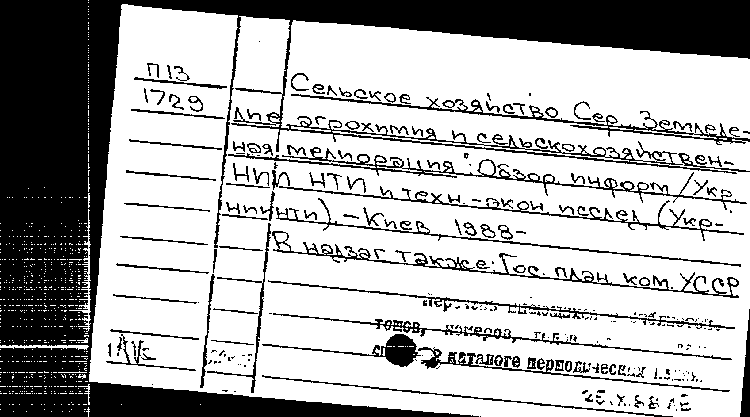 П13
1729
Сельское хозяйство. Сер. "Земледе-
лие, агрохимия и сельскохозяйствен-
ная мелиорация": Обзор. информ / Укр.
НИИ НТИ и техн.-экон. исслед. (Укр-
НИИНТИ). – Киев, 1988-
В надзаг. также: Гос. план. ком. УССР
Перечень имеющихся в библиотеке
томов, номеров, годов
см. в каталоге периодических издан.
25.X.88 ЛЕ